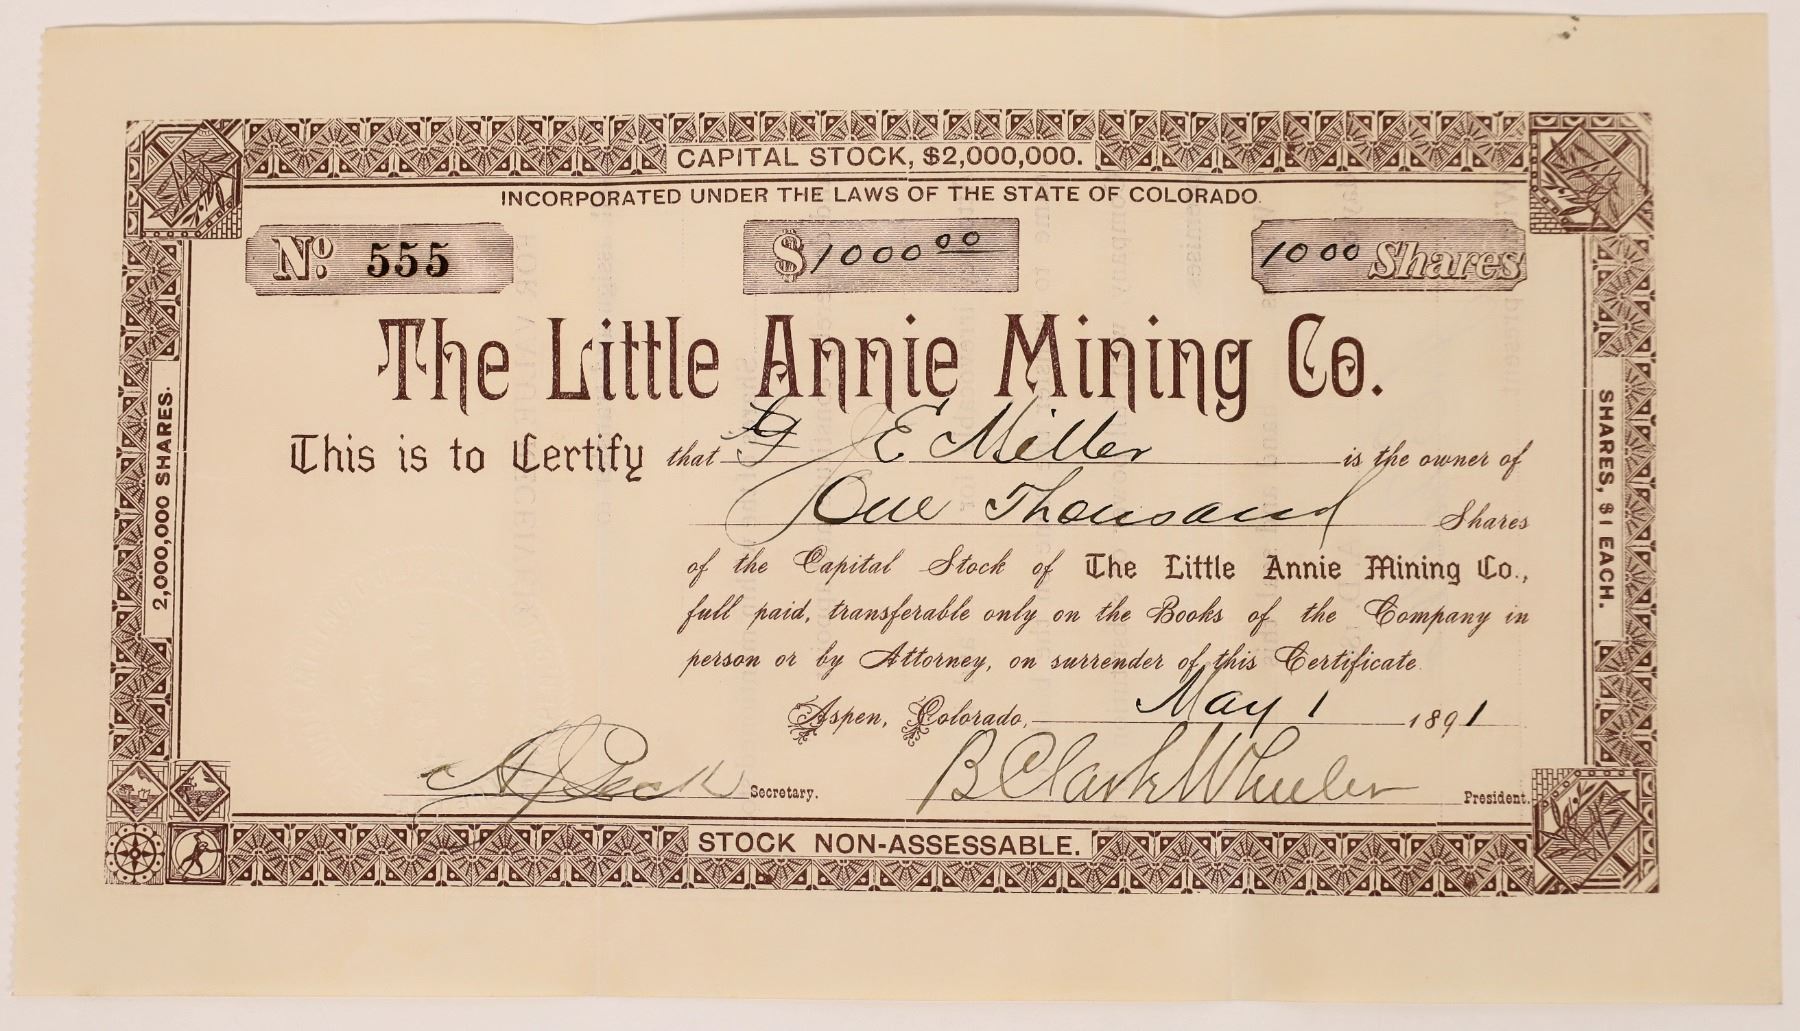 CAPITAL STOCK, $2,000,000.
INCORPORATED UNDER THE LAWS OF THE STATE OF COLORADO.
No. 555
$1000 00
1000 Shares
2,000,000 SHARES.
SHARES, $1 EACH.
The Little Annie Mining Co.
This is to Certify that G J E Miller is the owner of
One Thousand Shares
of the Capital Stock of The Little Annie Mining Co.,
full paid, transferable only on the Books of the Company in
person or by Attorney, on surrender of this Certificate.
Aspen, Colorado, May 1 1891
A J Peck Secretary.
B Clark Wheeler President.
STOCK NON-ASSESSABLE.